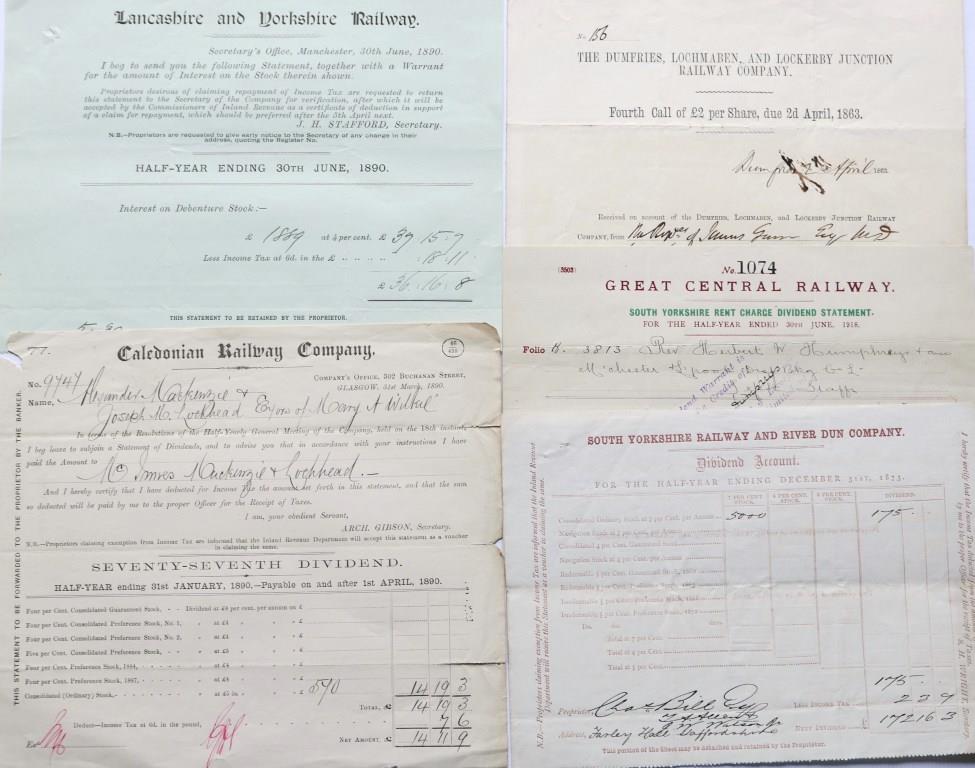 Lancashire and Yorkshire Railway.
Secretary's Office, Manchester, 30th June, 1890.
I beg to send you the following Statement, together with a Warrant
for the amount of Interest on the Stock therein shown.
Proprietors desirous of claiming repayment of Income Tax are requested to return
this statement to the Secretary of the Company for verification, after which it will be
accepted by the Commissioners of Inland Revenue as a certificate of deduction in support
of a claim for repayment, which should be preferred after the 5th April next.
J. H. STAFFORD, Secretary.
N.B.—Proprietors are requested to give early notice to the Secretary of any change in their
address, quoting the Register No.
HALF-YEAR ENDING 30TH JUNE, 1890.
Interest on Debenture Stock:—
£ 1889 at 4 per cent. £ 37 15 7
Less Income Tax at 6d. in the £ 18 11
£ 36 16 8
THIS STATEMENT TO BE RETAINED BY THE PROPRIETOR.
No. 156
THE DUMFRIES, LOCHMABEN, AND LOCKERBY JUNCTION
RAILWAY COMPANY.
Fourth Call of £2 per Share, due 2d April, 1863.
Dumfries 2 April 1863.
Received on account of the DUMFRIES, LOCHMABEN, AND LOCKERBY JUNCTION RAILWAY
COMPANY, from of James Esq
(3503)
No. 1074
GREAT CENTRAL RAILWAY.
SOUTH YORKSHIRE RENT CHARGE DIVIDEND STATEMENT.
FOR THE HALF-YEAR ENDED 30TH JUNE, 1918.
Folio H. 3813 Rev Herbert W. Humphreys + anr
M'chester & L'pool Bkg Co L
Warrant
Credit of
Staffs
77.
Caledonian Railway Company,
COMPANY'S OFFICE, 302 BUCHANAN STREET,
GLASGOW, 31st March, 1890.
No. 9747
Name, Alexander Mackenzie &
Joseph M. Lochhead Exors of Mary A
In terms of the Resolutions of the Half-Yearly General Meeting of the Company, held on the 18th instant,
I beg leave to subjoin a Statement of Dividends, and to advise you that in accordance with your instructions I have
paid the Amount to Mc Innes Mackenzie & Lochhead.—
And I hereby certify that I have deducted for Income Tax the amount set forth in this statement, and that the sum
so deducted will be paid by me to the proper Officer for the Receipt of Taxes.
I am, your obedient Servant,
ARCH. GIBSON, Secretary.
N.B.—Proprietors claiming exemption from Income Tax are informed that the Inland Revenue Department will accept this statement as a voucher
in claiming the same.
THIS STATEMENT TO BE FORWARDED TO THE PROPRIETOR BY THE BANKER.
SEVENTY-SEVENTH DIVIDEND.
HALF-YEAR ending 31st JANUARY, 1890.—Payable on and after 1st APRIL, 1890.
Four per Cent. Consolidated Guaranteed Stock, - - Dividend at £4 per cent. per annum on £
Four per Cent. Consolidated Preference Stock, No. 1, " at £4 " " £
Four per Cent. Consolidated Preference Stock, No. 2, " at £4 " " £
Five per Cent. Consolidated Preference Stock, " at £5 " " £
Four per Cent. Preference Stock, 1884, " at £4 " " £
Four per Cent. Preference Stock, 1887, " at £4 " " £
Consolidated (Ordinary) Stock, " " £ 570 14 19 3
TOTAL, £ 14 19 3
Deduct—Income Tax at 6d. in the pound, 7 6
NET AMOUNT, £ 14 11 9
SOUTH YORKSHIRE RAILWAY AND RIVER DUN COMPANY.
Dividend Account.
FOR THE HALF-YEAR ENDING DECEMBER 31ST, 1873.
7 PER CENT. STOCK. 4 PER CENT. STOCK. 5 PER CENT. STOCK. DIVIDEND.
Consolidated Ordinary Stock at 7 per Cent. per Annum 5000 175
Navigation Stock at 7 per Cent. per Annum
Consolidated 4 per Cent. Guaranteed Stock
Navigation Stock at 4 per Cent. per Annum
Redeemable 5 per Cent. Guaranteed Stock
Redeemable 5 per Cent. Preference Stock
Irredeemable 5 per Cent. Preference Stock
Irredeemable 5 per Cent. Preference Stock
Do. do.
Total at 7 per Cent.
Total at 4 per Cent.
Total at 5 per Cent.
175
LESS INCOME TAX 2 3 9
NETT DIVIDEND £ 172 16 3
Proprietor, Chas Bill Esq
Address, Farley Hall Staffordshire
This portion of the Sheet may be detached and retained by the Proprietor.
N.B.—Proprietors claiming exemption from Income Tax are informed that the Inland Revenue
Department will receive this Statement as a voucher in claiming the same.